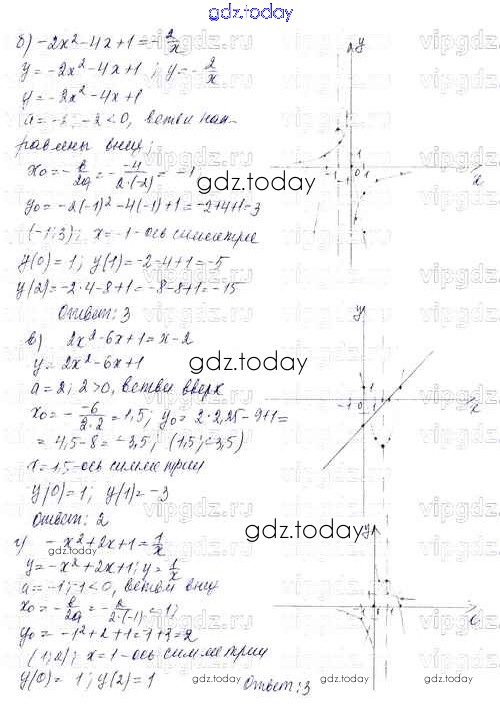 gdz.today
б) -2x²-4x+1=-2/x
y=-2x²-4x+1; y=-2/x
y=-2x²-4x+1
a=-2; -2<0, ветви нап-
равлены вниз;
x₀=-в/2a=-(-4)/(2·(-2))=-1
gdz.today
y₀=-2(-1)²-4(-1)+1=-2+4+1=3
(-1;3); x=-1-ось симметрии
y(0)=1; y(1)=-2-4+1=-5
y(2)=-2·4-8+1=-8-8+1=-15
Ответ: 3
в) 2x²-6x+1=x-2
y=2x²-6x+1
gdz.today
a=2; 2>0, ветви вверх
x₀=-(-6)/(2·2)=1,5; y₀=2·2,25-9+1=
=4,5-8=-3,5; (1,5;-3,5)
x=1,5-ось симметрии
y(0)=1; y(1)=-3
Ответ: 2
gdz.today
г) -x²+2x+1=1/x
gdz.today
y=-x²+2x+1; y=1/x
a=-1; -1<0, ветви вниз
x₀=-в/2a=-2/(2·(-1))=1;
y₀=-1²+2+1=1+3=2
(1;2); x=1-ось симметрии
y(0)=1; y(2)=1
Ответ: 3
gdz.today
gdz.today
vipgdz.ru
y
x
0
1
-1